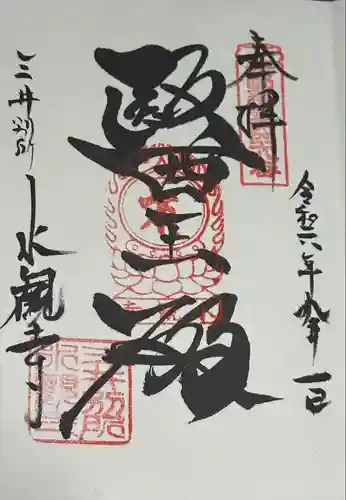 奉拝
令和六年 九月 一日
醫王殿
三井別所 水観寺